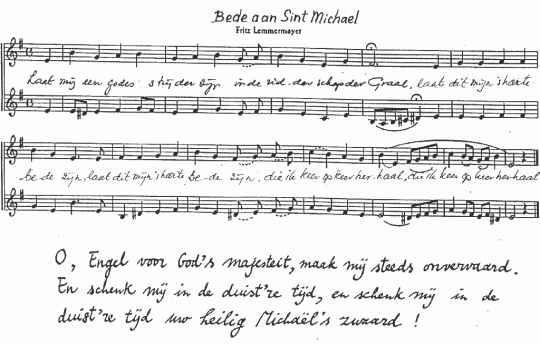 Bede aan Sint Michael
Fritz Lemmermayer
Laat mij een godes strijder zijn in de ridderschap der Graal, laat dit mijn 's harte
be-de zijn, laat dit mijn 's harte be-de zijn, die ik keer op keer her-haal, die ik keer op keer herhaal
O, Engel voor God's majesteit, maak mij steeds onvervaard.
En schenk mij in de duist're tijd, en schenk mij in de
duist're tijd uw heilig Michaël's zwaard !